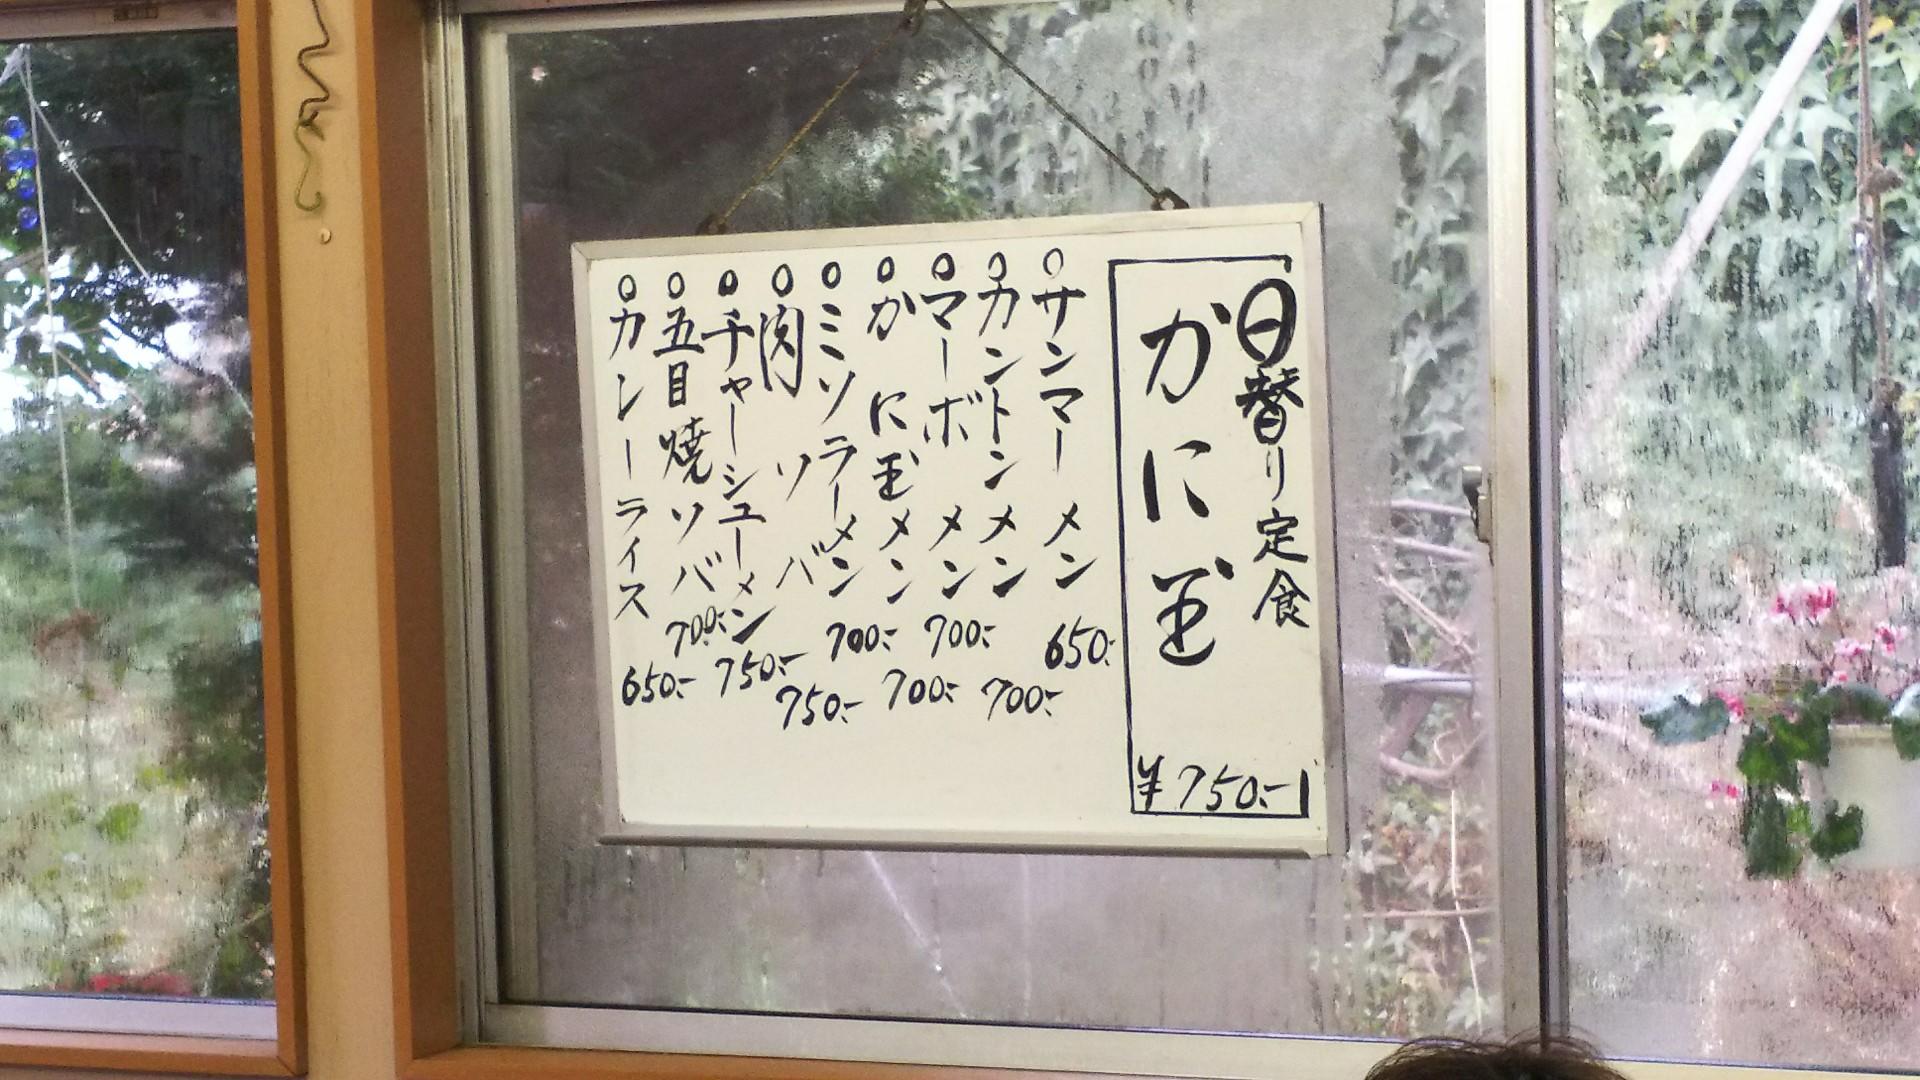 日替り定食
かに玉
¥750.-
○サンマーメン 650.-
○カントンメン 700.-
○マーボメン 700.-
○かに玉メン 700.-
○ミソラーメン 700.-
○肉ソバ 750.-
○チャーシューメン 750.-
○五目焼ソバ 700.-
○カレーライス 650.-